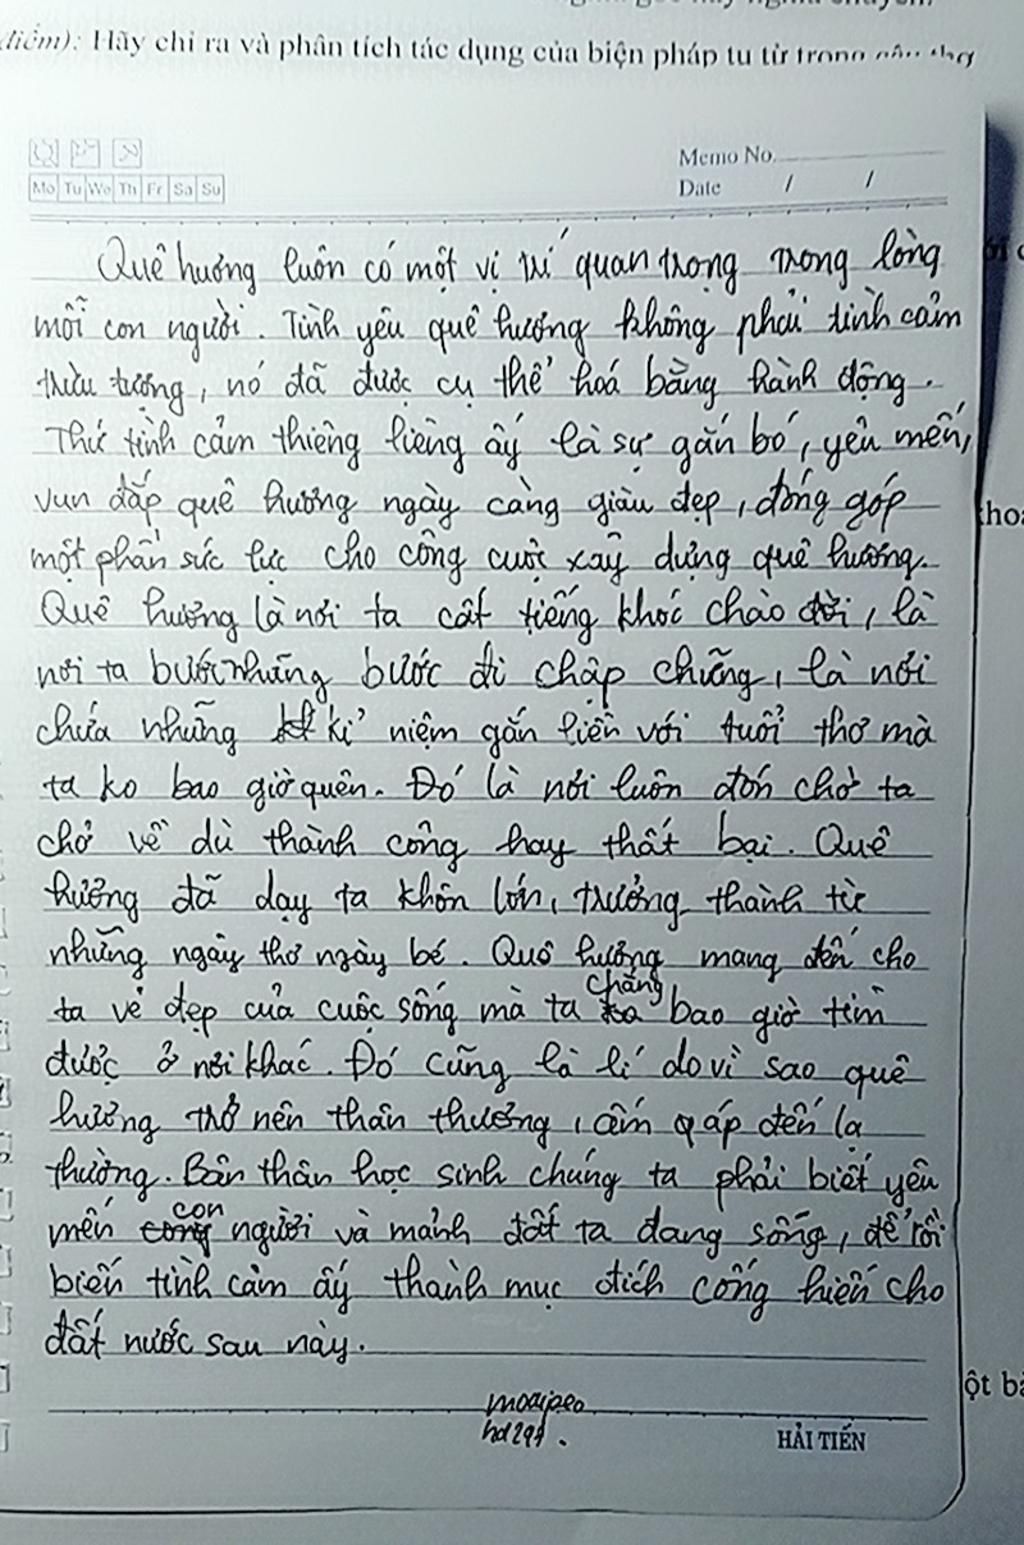 điểm): Hãy chỉ ra và phân tích tác dụng của biện pháp tu từ trong câu thơ
Memo No.
Mo Tu We Th Fr Sa Su
Date / /
Quê hương luôn có một vị trí quan trọng trong lòng
mỗi con người. Tình yêu quê hương không phải tình cảm
trừu tượng, nó đã được cụ thể hoá bằng hành động.
Thứ tình cảm thiêng liêng ấy là sự gắn bó, yêu mến,
vun đắp quê hương ngày càng giàu đẹp, đóng góp
một phần sức lực cho công cuộc xây dựng quê hương.
Quê hương là nơi ta cất tiếng khóc chào đời, là
nơi ta bước những bước đi chập chững, là nơi
chứa những kỉ niệm gắn liền với tuổi thơ mà
ta ko bao giờ quên. Đó là nơi luôn đón chờ ta
chở về dù thành công hay thất bại. Quê
hương đã dạy ta khôn lớn, trưởng thành từ
những ngày thơ ngày bé. Quê hương mang đến cho
ta vẻ đẹp của cuộc sống mà ta chẳng bao giờ tìm
được ở nơi khác. Đó cũng là lí do vì sao quê
hương trở nên thân thương, ấm qáp đến lạ
thường. Bản thân học sinh chúng ta phải biết yêu
mến con người và mảnh đất ta đang sống, để rồi
biến tình cảm ấy thành mục đích cống hiến cho
đất nước sau này.
HẢI TIẾN
ột bà